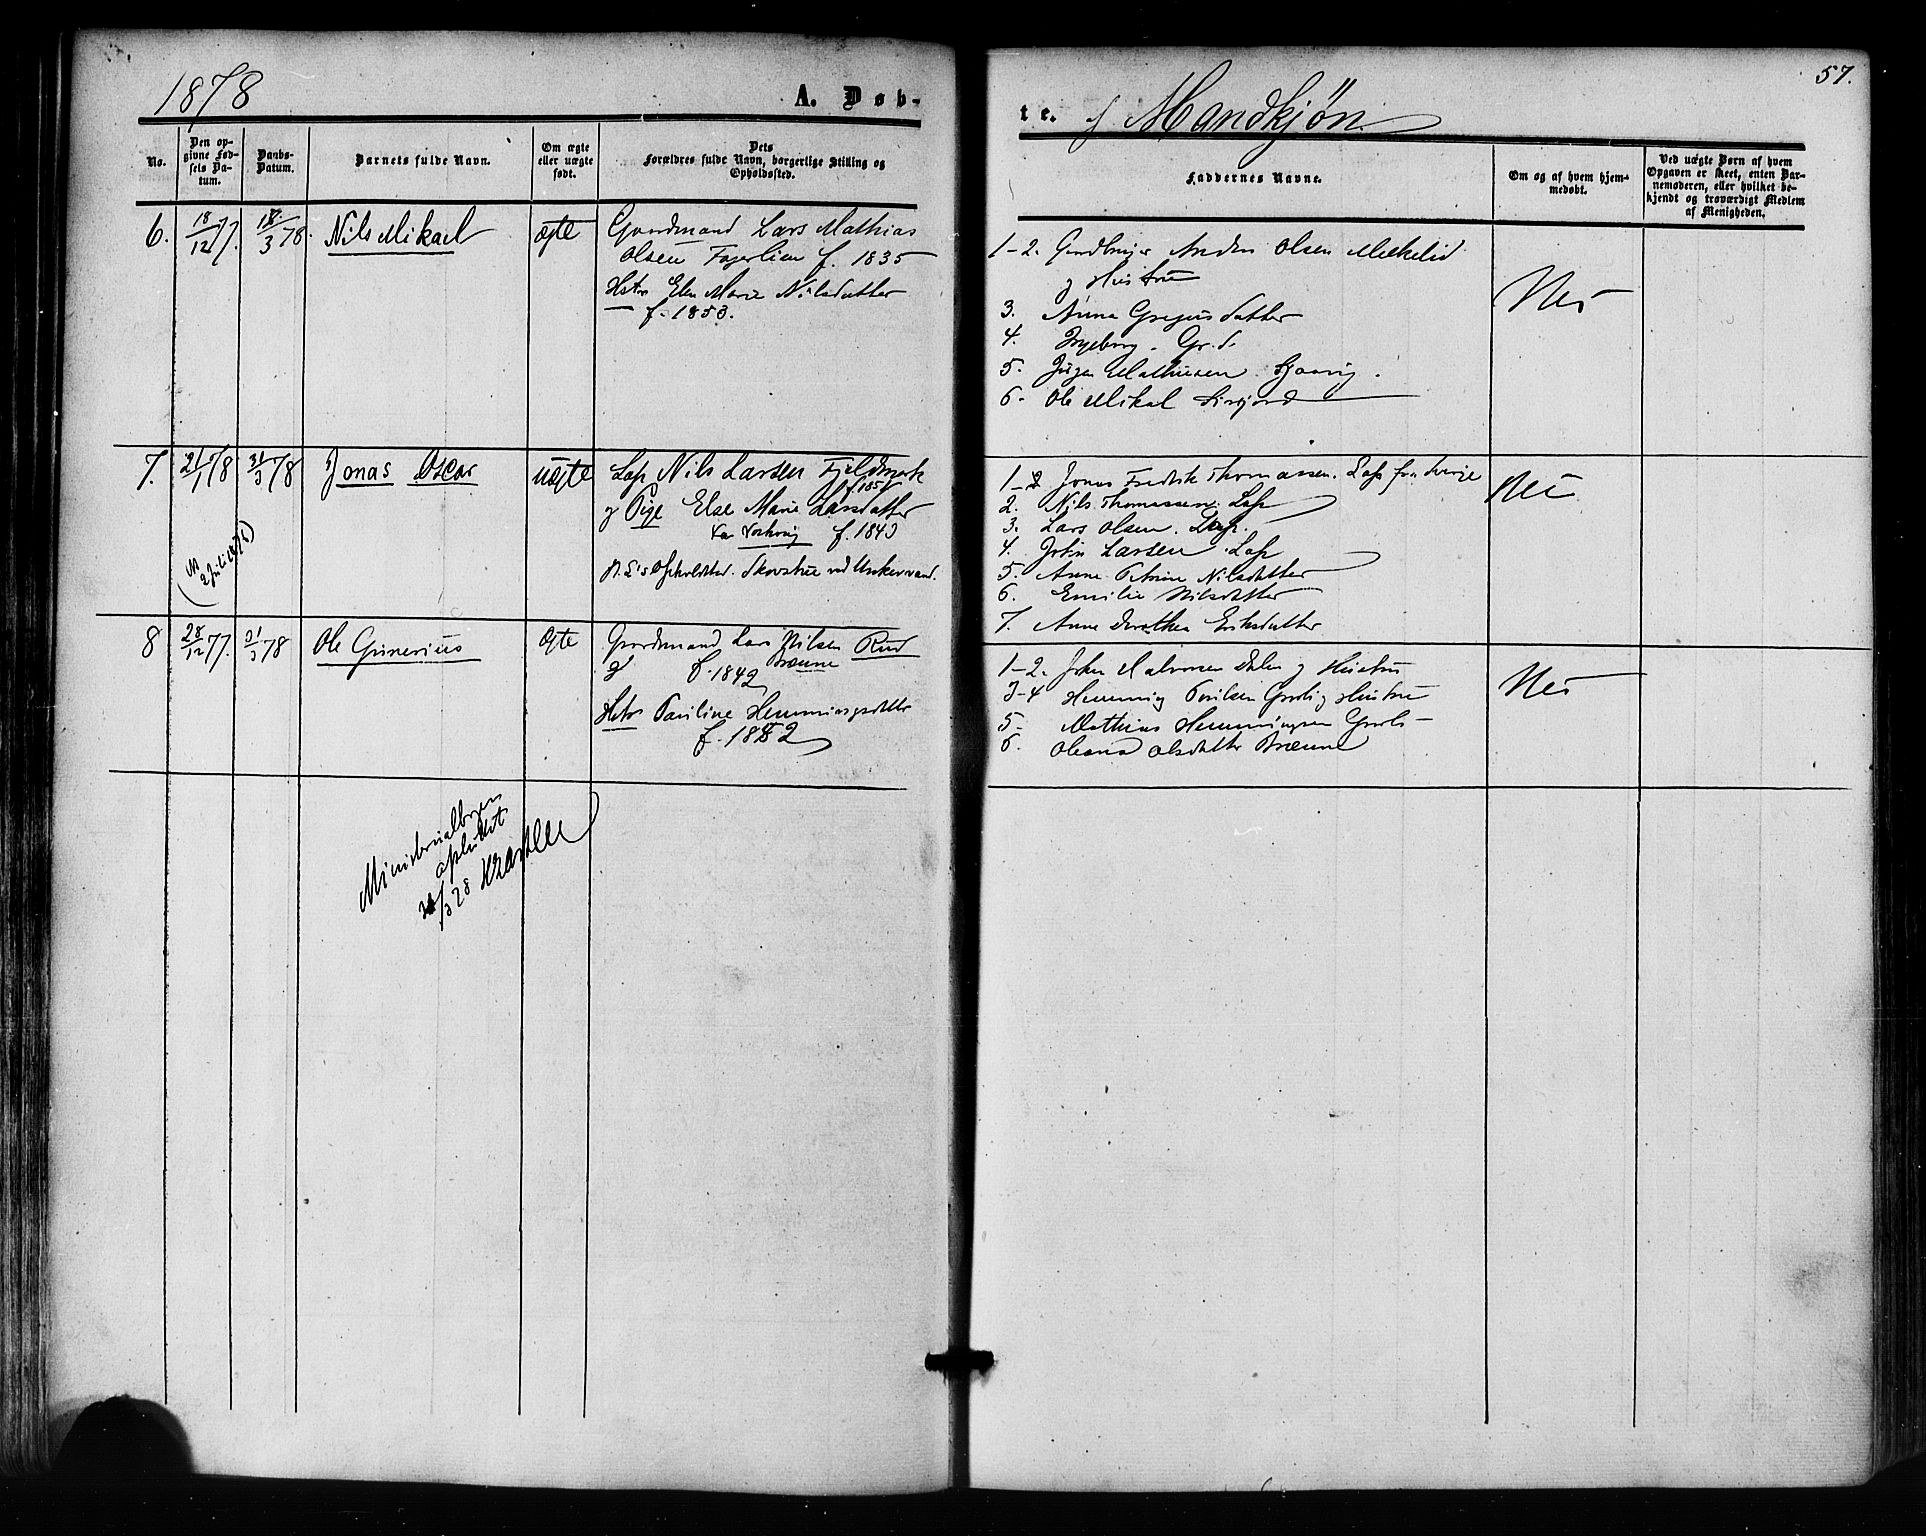 1878
A. Døb-
No.
Den op-
givne Fød-
sels Da-
tum.
Daabs-
Datum.
Barnets fulde Navn.
Om ægte
eller uægte
født.
Dets
Forældres fulde Navn, borgerlige Stilling og
Opholdssted.
6.
18/12 77.
18/3 78.
Nils Mikael
ægte
Gaardmand Lars Mathias
Olsen Fagerlien f. 1835
Hstr Elen Marie Nilsdatter
f. 1853.
7.
21/1 78
31/3 78
Jonas Oscar
uægte
Lap Nils Larsen Fjeldmark
og Pige Else Marie Larsdatter
f. 1843
Skovstue ved Unkervand.
8
28/12 77.
31/3 78
Ole Gunerius
ægte
Gaardmand Lars Nilsen Rud
Brænne
og f. 1842
Hstr Pauline Hemmingsdatter
f. 1852
Ministerialbogen
afsluttet
31/3 78
57.
te. af Mandkjøn.
Faddernes Navne.
Om og af hvem hjem-
medøbt.
Ved uægte Børn af hvem
Opgaven er skeet, enten Bar-
nemoderen, eller hvilket be-
kjendt og troværdigt Medlem
af Menigheden.
1-2. Anders Olsen
og Hustru
3. Anna Gregusdatter
4. Ingeborg Gr. d.
5. Mathisen
6. Ole Mikal
Nei
1. Jonas Fredrik Thomassen. Lap fra Sverige
2. Nils Thomassen. Lap
3. Lars Olsen. Lap.
4. John Larsen. Lap
5. Anne Petrine Nilsdatter
6. Emilie Nilsdatter
7. Anne Dorothea Eriksdatter
Nei
1-2. John Halvorsen Dalen og Hustru
3-4 Hemming Paulsen og Hustru
5. Mathias Hemmingsen
6. Oleana Olsdatter Brænne
Nei